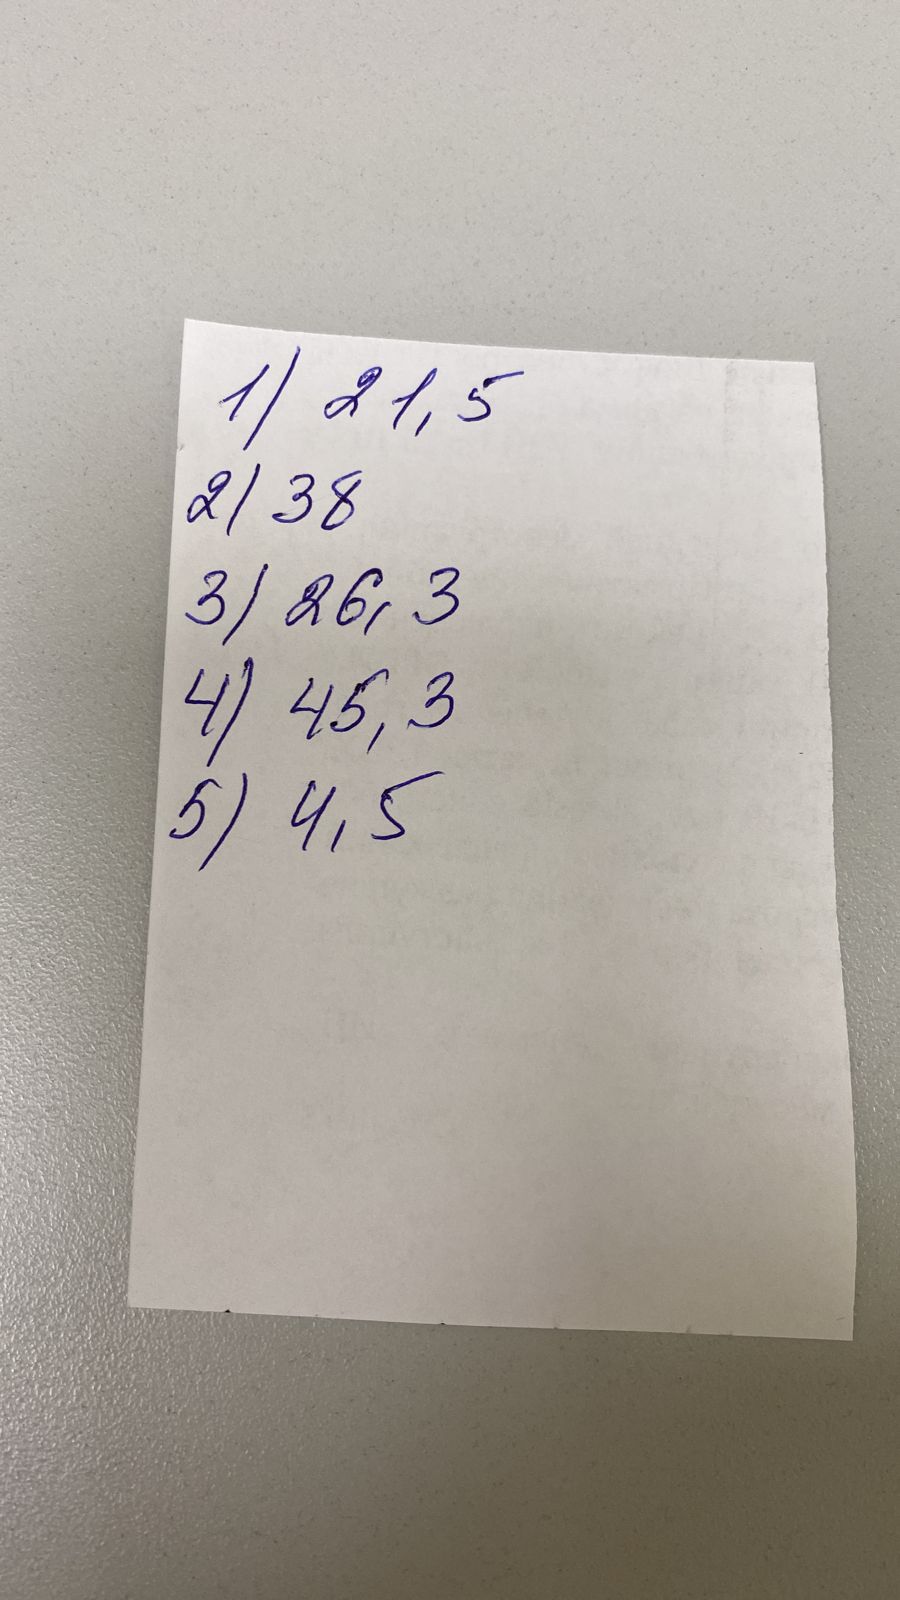 1) 21,5
2) 38
3) 26,3
4) 45,3
5) 4,5